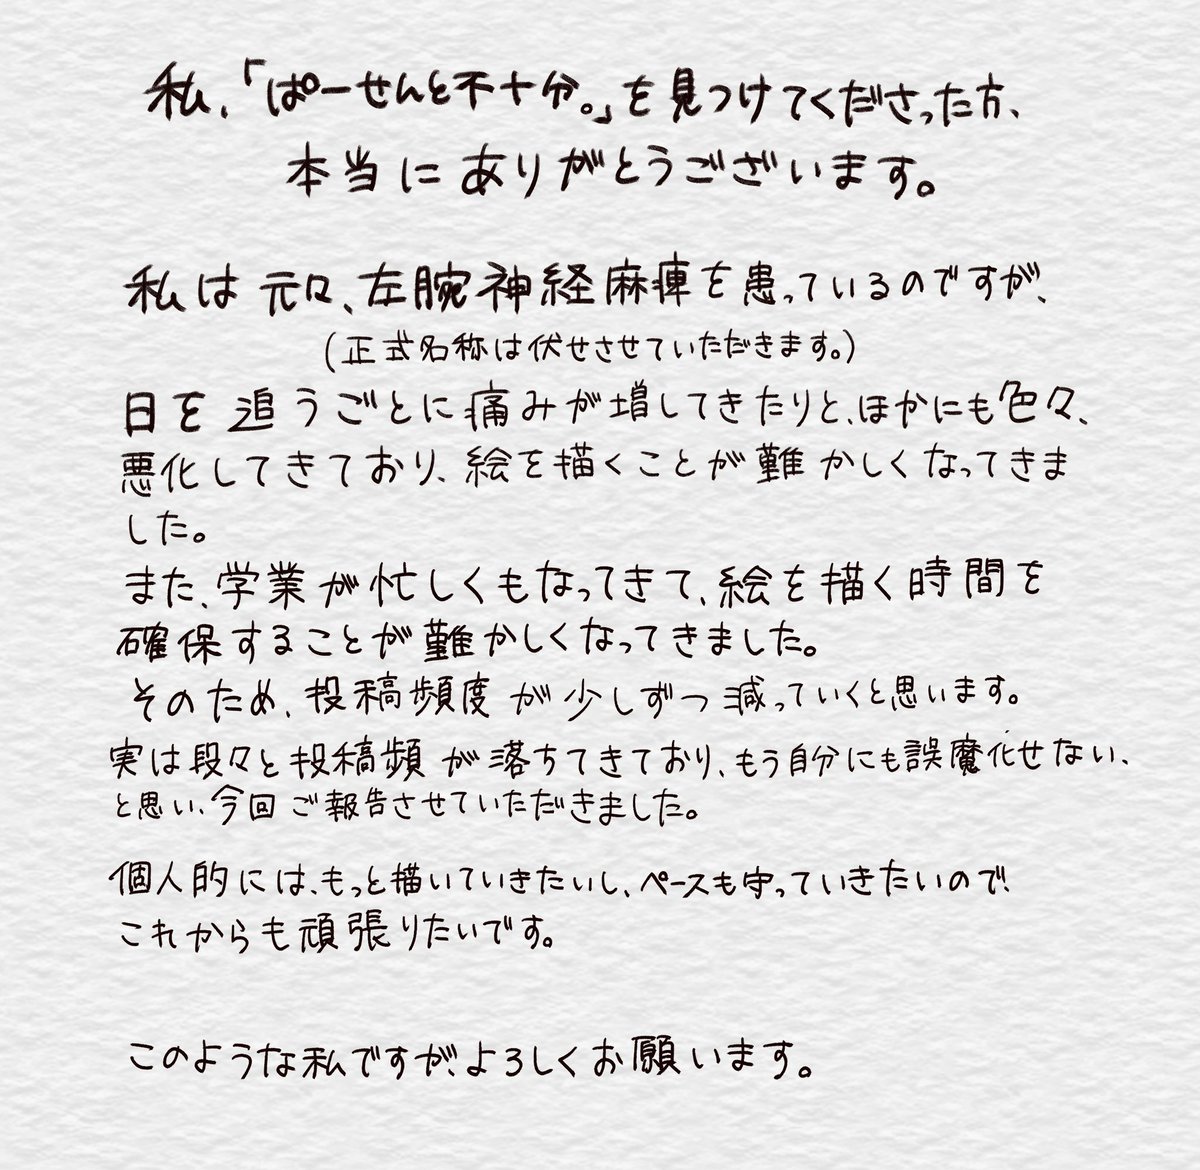 私、「ぱーせんと不十分。」を見つけてくださった方、
本当にありがとうございます。
私は元々、左腕神経麻痺を患っているのですが、
(正式名称は伏せさせていただきます。)
日を追うごとに痛みが増してきたりと、ほかにも色々、
悪化してきており、絵を描くことが難かしくなってきま
した。
また、学業が忙しくもなってきて、絵を描く時間を
確保することが難かしくなってきました。
そのため、投稿頻度が少しずつ減っていくと思います。
実は段々と投稿頻が落ちてきており、もう自分にも誤魔化せない、
と思い、今回ご報告させていただきました。
個人的には、もっと描いていきたいし、ペースも守っていきたいので、
これからも頑張りたいです。
このような私ですが、よろしくお願います。